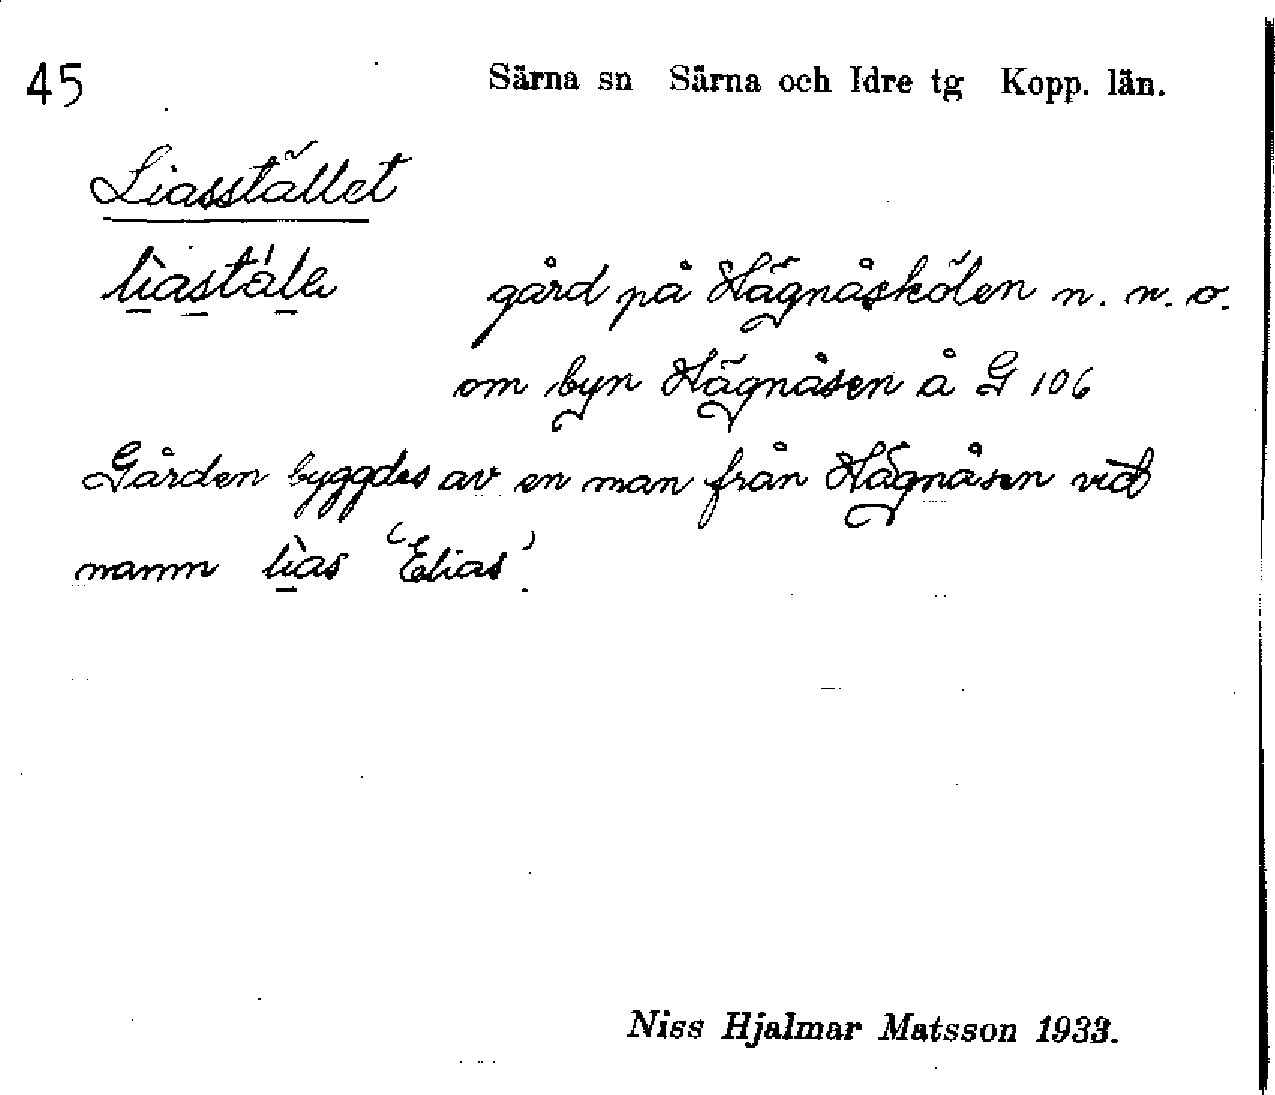 45 Särna sn Särna och Idre tg Kopp. län.
Liasstället
lìastäla gård på Hägnåskölen n. n. o.
om byn Hägnåsen å G 106
Gården byggdes av en man från Hägnåsen vid
namn lìas ‘Elias’.
Niss Hjalmar Matsson 1933.